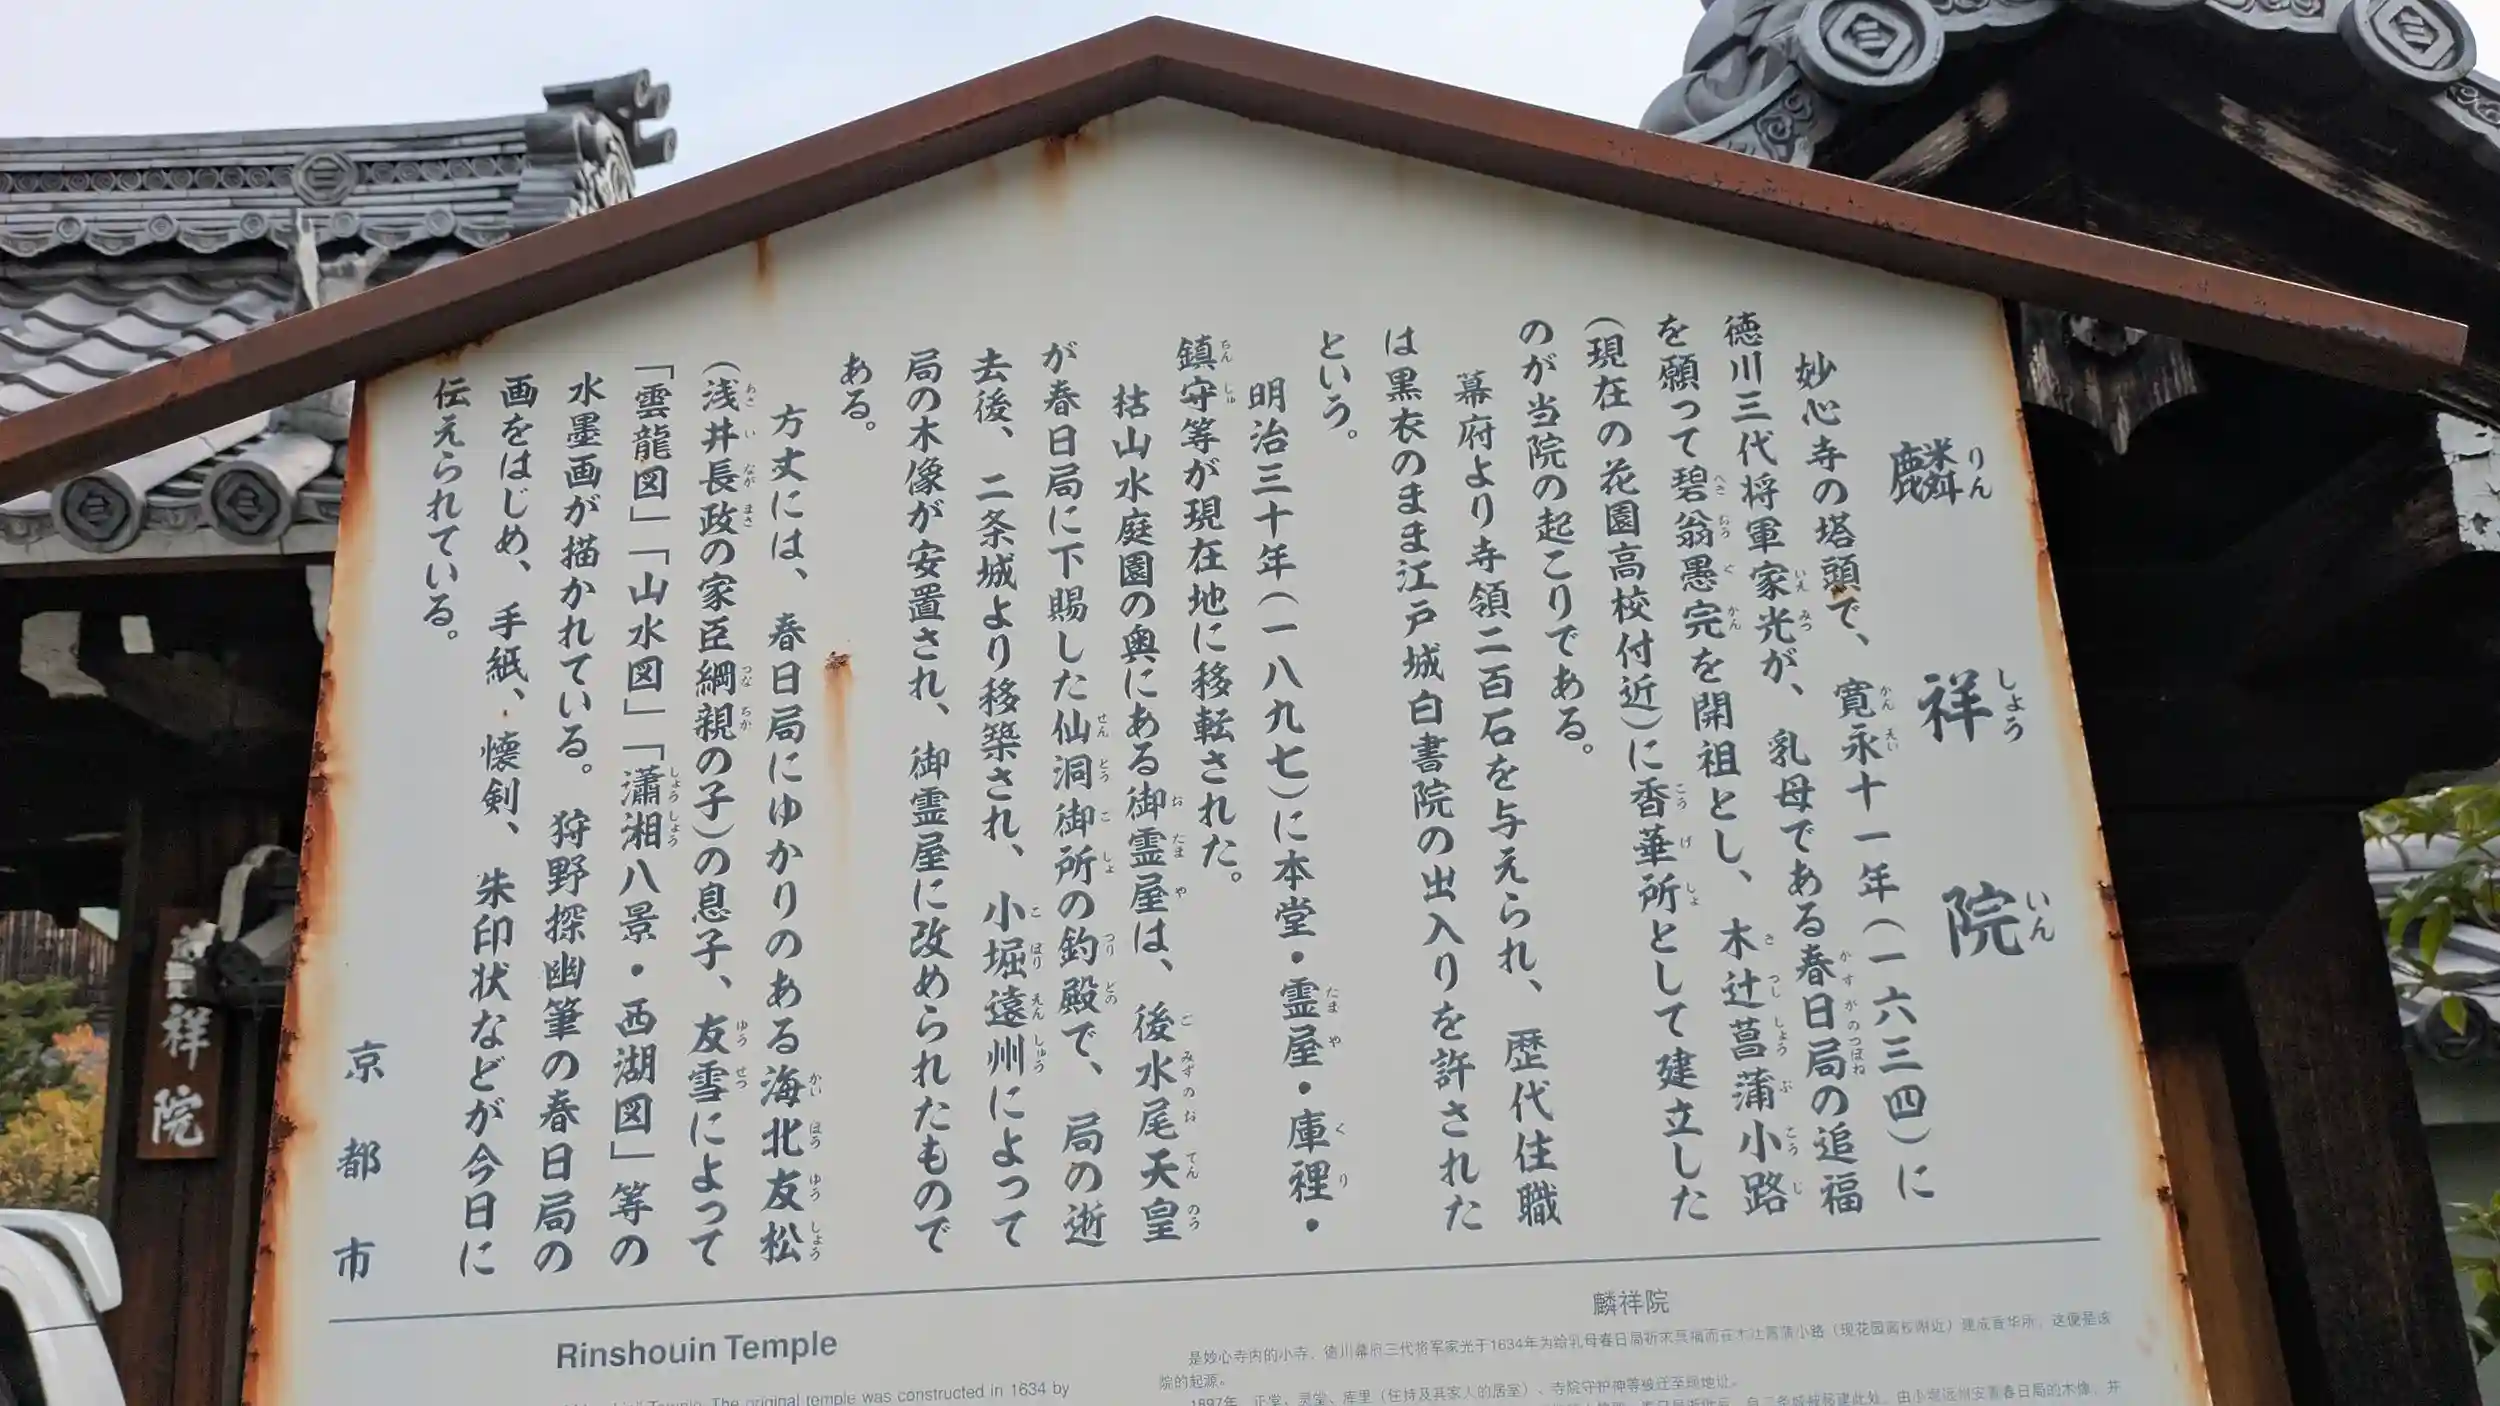 麟祥院
りんしょういん
妙心寺の塔頭で、寛永十一年(一六三四)に
徳川三代将軍家光が、乳母である春日局の追福
を願って碧翁愚完を開祖とし、木辻菖蒲小路
(現在の花園高校付近)に香華所として建立した
のが当院の起こりである。
幕府より寺領二百石を与えられ、歴代住職
は黒衣のまま江戸城白書院の出入りを許された
という。
明治三十年(一八九七)に本堂・霊屋・庫裡・
鎮守等が現在地に移転された。
枯山水庭園の奥にある御霊屋は、後水尾天皇
が春日局に下賜した仙洞御所の釣殿で、局の逝
去後、二条城より移築され、小堀遠州によって
局の木像が安置され、御霊屋に改められたもので
ある。
方丈には、春日局にゆかりのある海北友松
(浅井長政の家臣綱親の子)の息子、友雪によって
「雲龍図」「山水図」「瀟湘八景・西湖図」等の
水墨画が描かれている。狩野探幽筆の春日局の
画をはじめ、手紙、懐剣、朱印状などが今日に
伝えられている。
京都市
Rinshouin Temple
Temple. The original temple was constructed in 1634 by
麟祥院
是妙心寺内的小寺，德川幕府三代将军家光于1634年为给乳母春日局祈求冥福而在木辻菖蒲小路（现花园高校附近）建成香华所，这便是该
院的起源。
1897年，正堂、灵堂、库里（住持及其家人的居室）、寺院守护神等被迁至现地址。
祥院